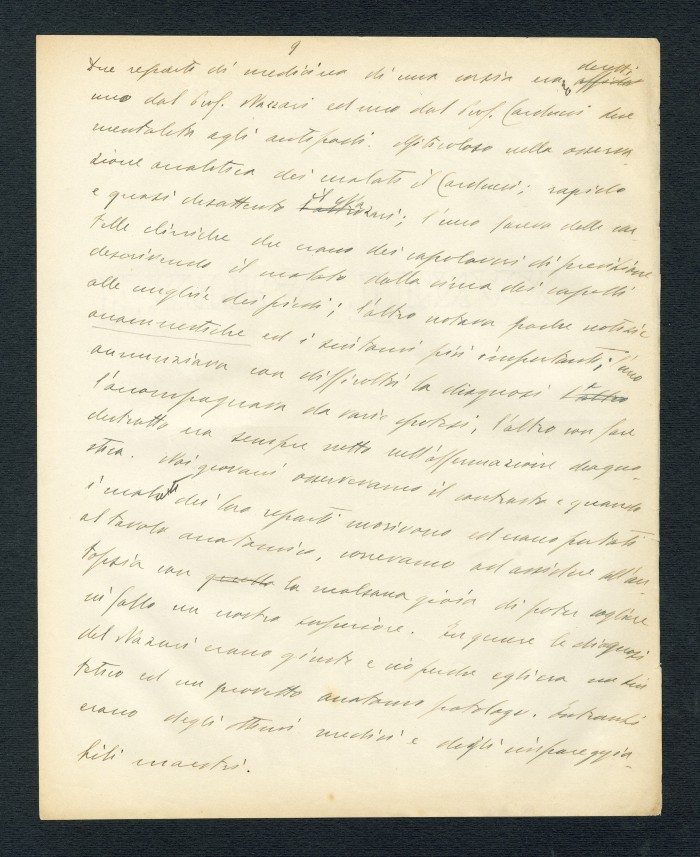 9
Due reparti di medicina di una corsia erano diretti affidati
uno dal Prof. Nazzari ed uno dal Prof. Carducci due
mentalità agli antipodi. Meticoloso nella osserva
zione analitica dei malati il Carducci; rapido
e quasi disattento il Nazzari; l'uno faceva delle car
telle cliniche che erano dei capolavori di precisione
descrivendo il malato dalla cima dei capelli
alle unghie dei piedi; l'altro notava poche notizie
anamnestiche ed i sintomi più importanti; l'uno
annunziava con difficoltà la diagnosi e l'altro
l'accompagnava da varie ipotesi; l'altro con fare
distratto era sempre netto nell'affermazione diagno
stica. Noi giovani osservavamo il contrasto e quando
i malati dei loro reparti morivano ed erano portati
al tavolo anatomico, correvamo ad assistere all'au
topsia con quella la malsana gioia di poter cogliere
in fallo un nostro superiore. In genere le diagnosi
del Nazzari erano giuste e ciò perché egli era un sin
tetico ed un provetto anatomo patologo. Entrambi
erano degli ottimi medici e degli impareggia-
bili maestri.